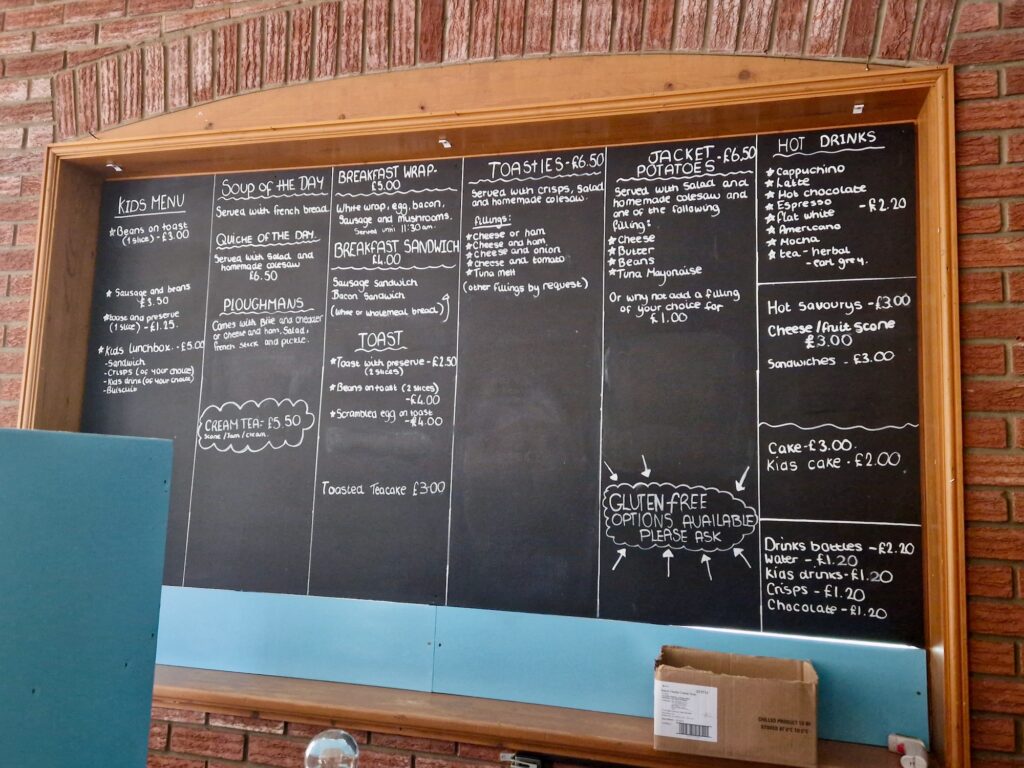 KIDS MENU
* Beans on toast
(1 slice) - £3.00
* Sausage and beans
- £3.50
and preserve
(1 slice) - £1.25.
* Kids lunchbox. - £5.00
- Sandwich
- Crisps (of your choice)
- Kids drink (of your choice)
SOUP OF THE DAY
Served with french bread
QUICHE OF THE DAY.
Served with salad and
homemade coleslaw
£6.50
PLOUGHMANS
Comes with Brie and cheddar
or cheese and ham, Salad,
French stick and pickle.
CREAM TEA - £5.50
Scone / Jam / cream.
BREAKFAST WRAP-
£5.00
White wrap, egg, bacon,
Sausage and mushrooms.
Served until 11:30am.
BREAKFAST SANDWICH
£4.00
Sausage sandwich
Bacon sandwich
(White or wholemeal bread)
TOAST
* Toast with preserve - £2.50
(2 slices)
* Beans on toast (2 slices)
- £4.00
* Scrambled egg on toast
- £4.00
Toasted Teacake £3.00
TOASTIES - £6.50
Served with crisps, Salad
and homemade coleslaw.
fillings:
* Cheese or ham
* Cheese and ham
* Cheese and onion
* Cheese and tomato
* Tuna melt
(other fillings by request)
JACKET - £6.50
POTATOES
Served with Salad and
homemade coleslaw and
one of the following
filling:
* Cheese
* Butter
* Beans
* Tuna Mayonaise
Or why not add a filling
of your choice for
£1.00
GLUTEN-FREE
OPTIONS AVAILABLE
PLEASE ASK
HOT DRINKS
* Cappuchino
* Latte
* Hot chocolate
* Espresso
* Flat white - £2.20
* Americano
* Mocha
* tea - herbal
- earl grey.
Hot savourys - £3.00
Cheese/fruit scone
£3.00
Sandwiches - £3.00
Cake - £3.00.
Kids cake - £2.00
Drinks bottles - £2.20
Water - £1.20
Kids drinks - £1.20
Crisps - £1.20
Chocolate - £1.20
CHILLED PRODUCT TO BE